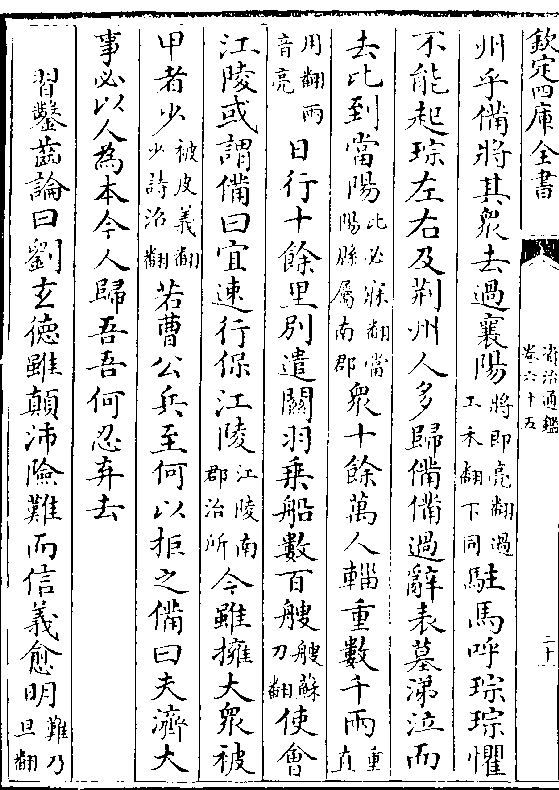 欽定四庫全書
資治通鑑
卷六十五
二十一
州乎備將其衆去過襄陽將即亮翻過工禾翻下同駐馬呼琮琮懼
不能起琮左右及荆州人多歸備備過辭表墓涕泣而
去比到當陽比必寐翻當陽縣屬南郡衆十餘萬人輜重數千兩重直
用翻兩音亮日行十餘里别遣關羽乗船數百艘艘蘇刀翻使會
江陵或謂備曰宜速行保江陵江陵南郡治所今雖擁大衆被
甲者少被皮義翻少詩沼翻若曹公兵至何以拒之備曰夫濟大
事必以人為本今人歸吾吾何忍弃去
習鑿齒論曰劉玄德雖顛沛險難而信義愈明難乃旦翻